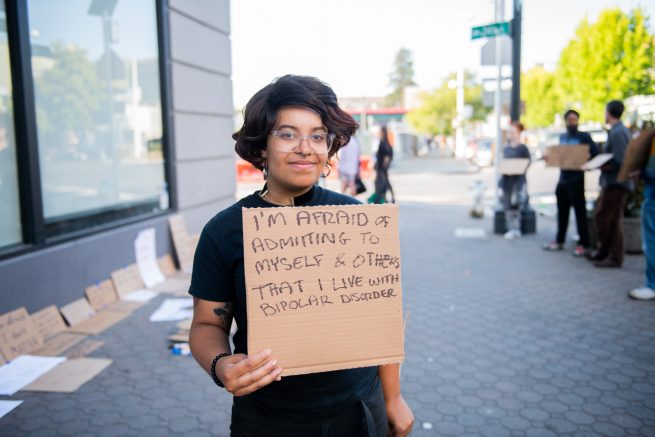 I'M AFRAID OF
ADMITTING TO
MYSELF & OTHERS
THAT I LIVE WITH
BIPOLAR DISORDER